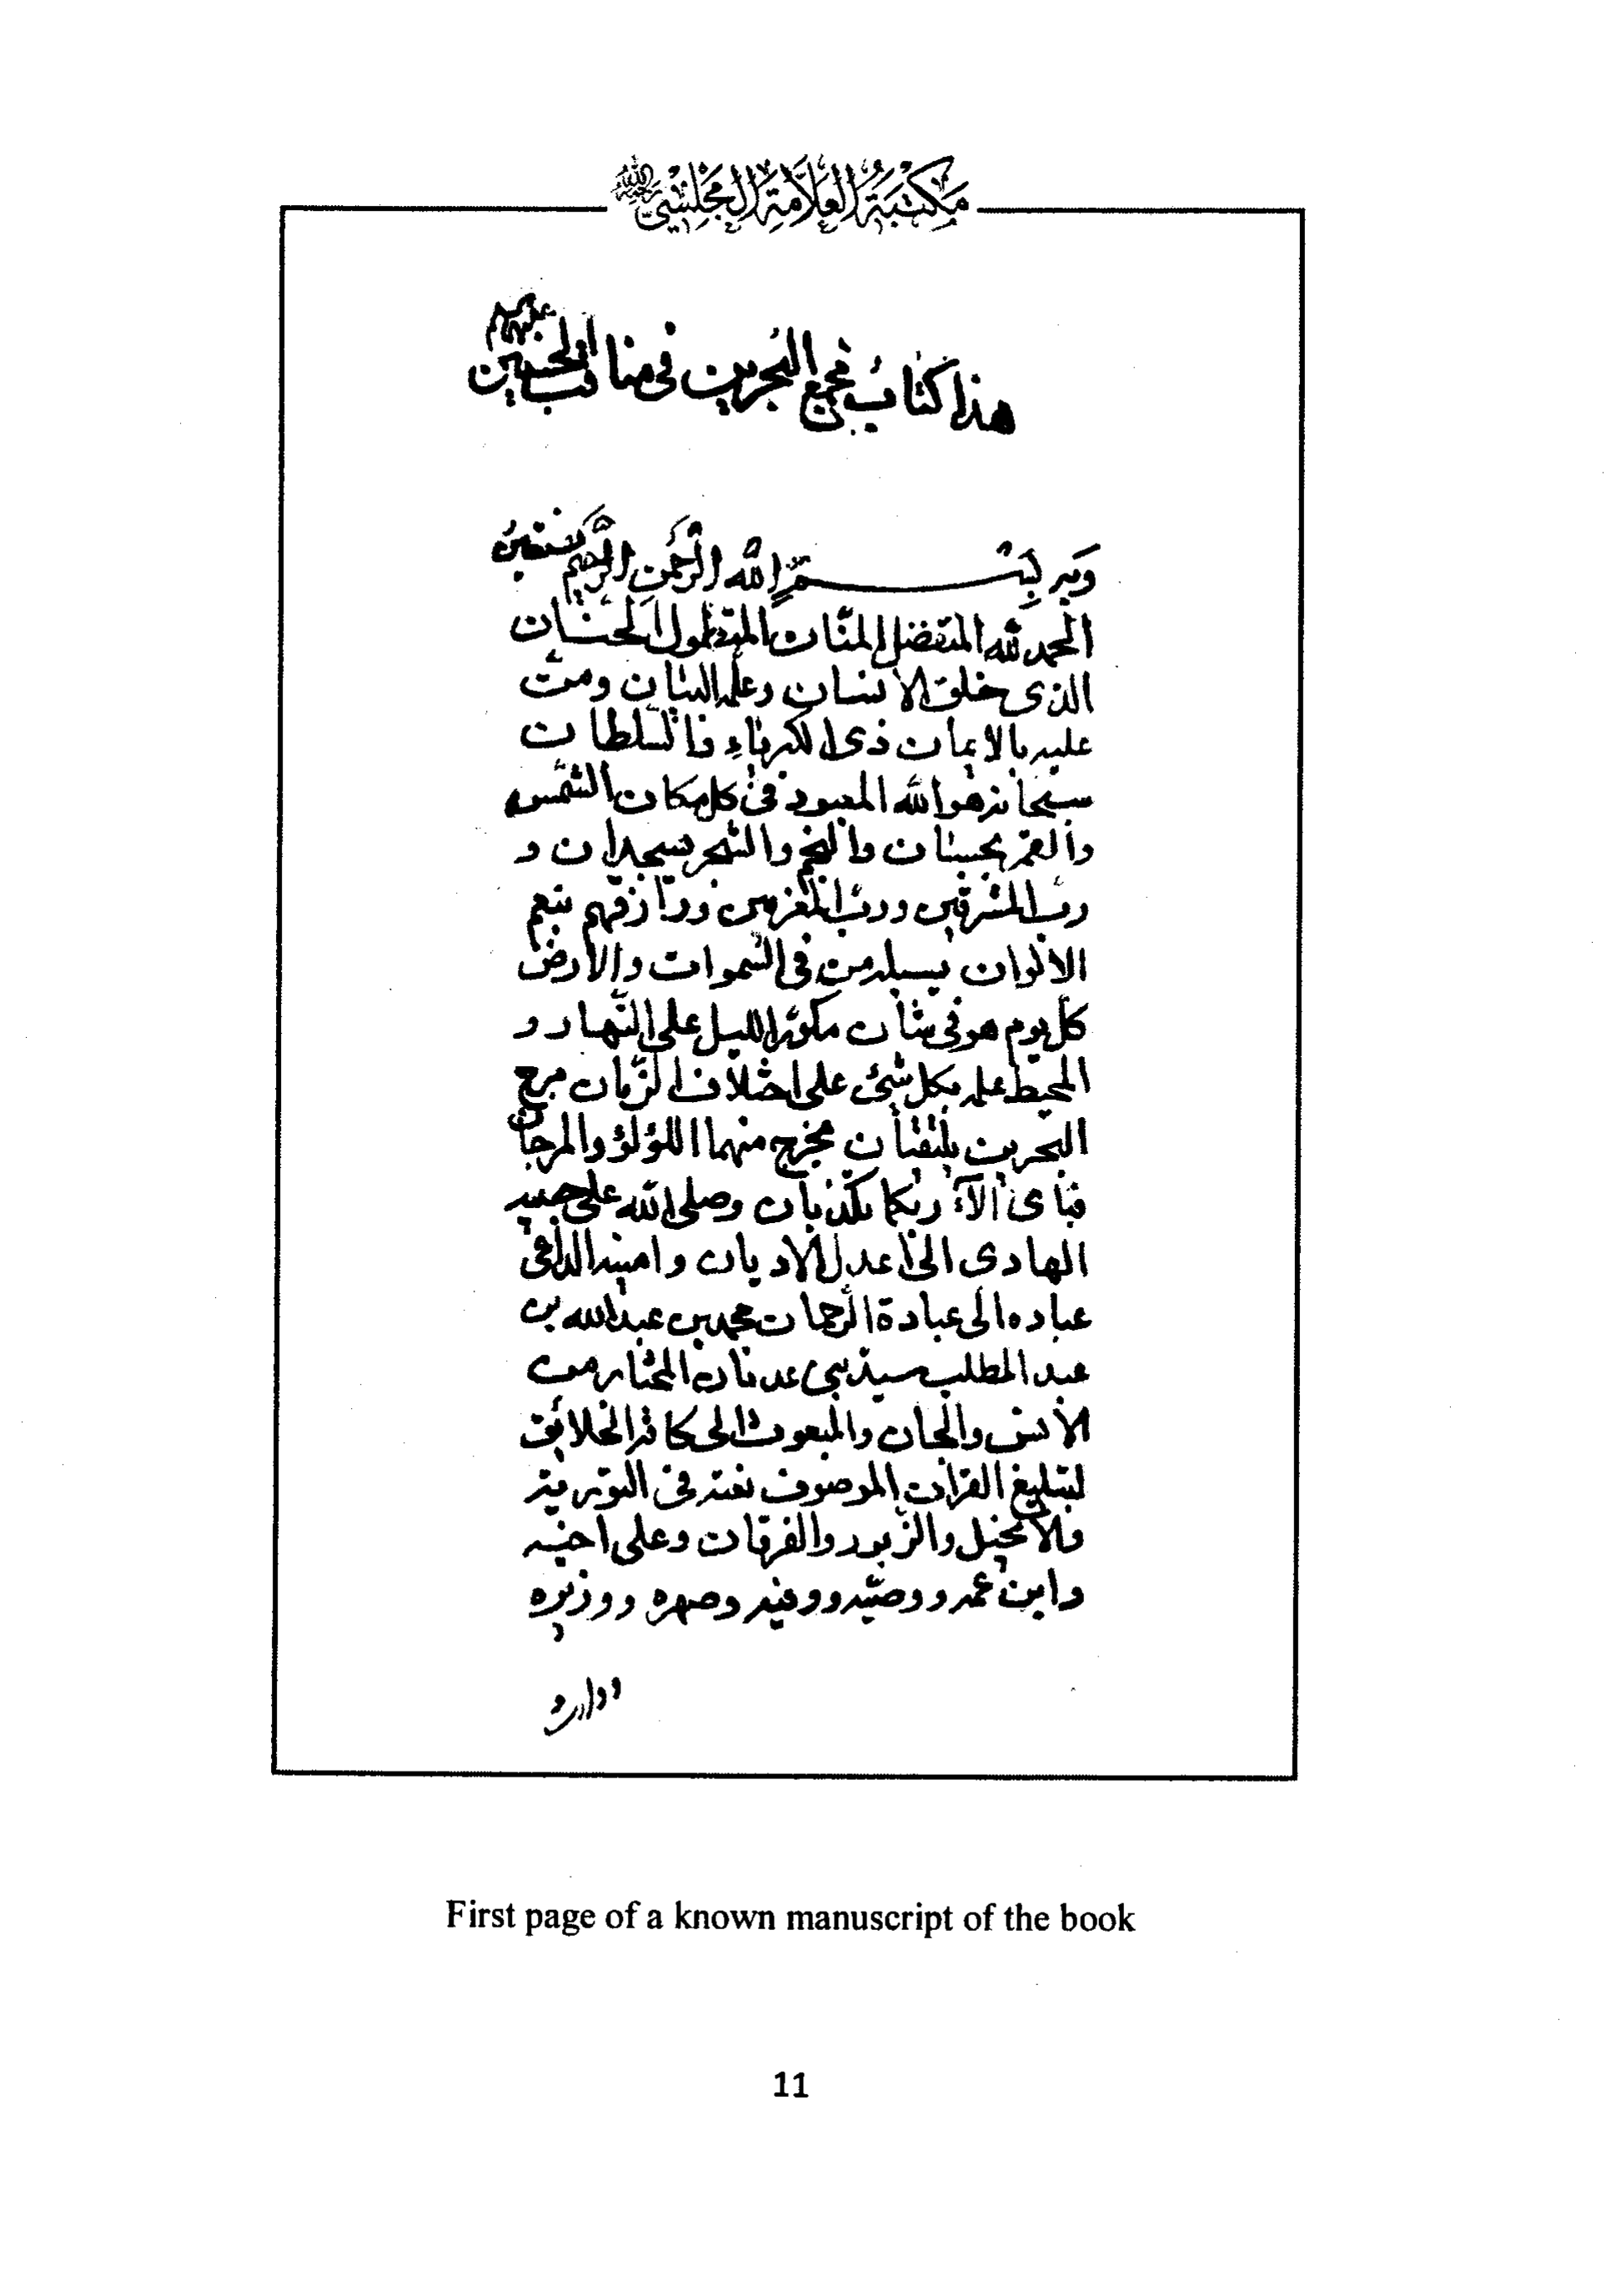 مكتبة العلامة المجلسي رحمه الله
هذا كتاب مجمع البحرين في مناقب الحسنين عليهم السلام
وبه بسم الله الرحمن الرحيم نستعين
الحمد لله المتفضل المنّان المتطول الحسّان
الذى خلق الانسان وعلمه البيان ومنّ
عليه بالايمان ذى الكبرياء والسّلطان
سبحانه هو الله المعبود فى كل مكان الشّمس
والقمر بحسبان والنجم والشجر يسجدان و
ربّ المشرقين وربّ المغربين ورازقهم بنعم
الالوان يسئله من فى السّموات والارض
كلّ يوم هو فى شأن مكوّر الليل على النّهار و
المحيط علمه بكل شئ على اختلاف الزّمان مرج
البحرين يلتقيان مخرج منهما اللؤلؤ والمرجان
فباى الآء ربكما تكذبان وصلى الله على حبيبه
الهادى الى اعدل الاديان وامينه الداعى
عباده الى عبادة الرّحمان محمد بن عبد الله بن
عبد المطلب سيد بنى عدنان المختار من
الأنس والجان والمبعوث الى كافة الخلائق
لتبليغ القران الموصوف نعته فى التورية
والانجيل والزّبور والفرقان وعلى اخيه
وابن عمه ووصيّه وصهره ووزيره
First page of a known manuscript of the book
11